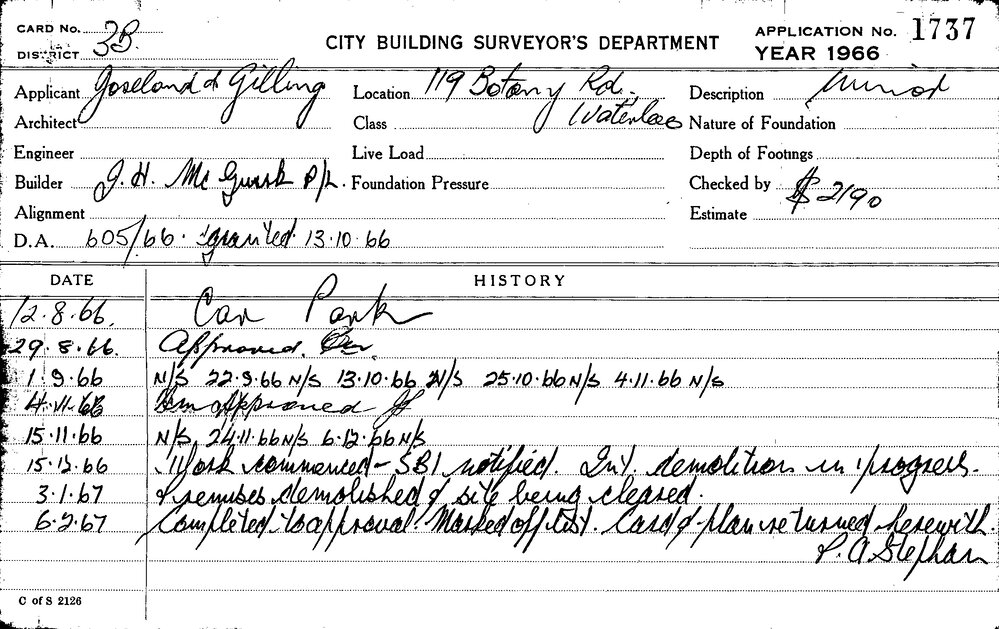 CARD No.
DISTRICT 3B.
CITY BUILDING SURVEYOR'S DEPARTMENT
APPLICATION No. 1737
YEAR 1966
Applicant Joseland & Gilling Location 119 Botany Rd., Description Minor
Architect Class Waterloo Nature of Foundation
Engineer Live Load Depth of Footings
Builder J. H. Mc Gurk P/L. Foundation Pressure Checked by
Alignment Estimate $2190
D.A. 605/66. granted 13.10.66
DATE HISTORY
12.8.66. Car Park
29.8.66. Approved.
1.9.66 N/S 22.9.66 N/S 13.10.66 N/S 25.10.66 N/S 4.11.66 N/S
4.11.66 Approved
15.11.66 N/S, 24.11.66 N/S 6.12.66 N/S
15.12.66 Work commenced - SB1 notified. Int. demolition in progress.
3.1.67 Premises demolished & site being cleared.
6.2.67 Completed to approval. Marked off list. Card & plan returned herewith.
P. A. Stephan
C of S 2126